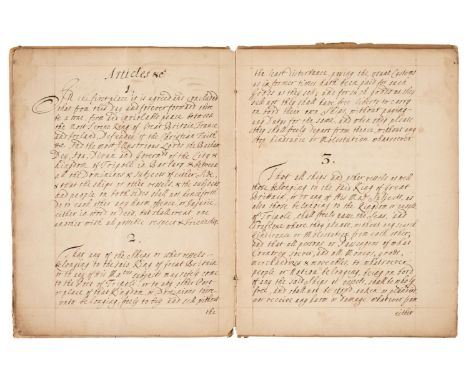 Articles &c
1.
In the first place it is agreed and concluded
that from this day and forever forward there
be a true firm and inviolable peace between
the most Serene King of Great Britain, France
and Ireland, Defender of the Christian Faith
&c. And the most Illustrious Lords the Bashaw
Dey, Aga, Divan and Governors of the City &
Kingdom of Tripoli in Barbary & between
all the Dominions & Subjects of either Side,
& the Ships or other vessels & the Subjects
and people on both sides shall not henceforth
do to each other any harm offence, or Injury,
either in word or deed, but shall treat one
another with all possible respect & friendship.
2.
That any of the Ships or other vessels
belonging to the said King of Great Britain
or to any of his Maj.ts subjects may safely come
to the Port of Tripoli or to any other Port
or place of that Kingdom, & Dominions there
unto belonging, freely to buy and sell without
the
the least disturbance, paying the usual Customs
as in former times hath been paid for such
Goods as they sell, and for such Goods as they
sell not they shall have free liberty to carry
on board their own Ships, without paying
any Dutys for the same, and when they please
they shall freely depart from thence, without any
stop hindrance or Molestation whatsoever.
3.
That all Ships and other vessels as well
those belonging to the said King of Great
Britain, or to any of his Maj.ts Subjects, as
also those belonging to the Kingdom or people
of Tripoli shall freely pass the Seas, and
traffique where they please, without any Search
hindrance or Molestation from each other;
and that all persons or Passengers of what
Country soever, and all Monies, goods,
merchandizes & moveables to whatsoever
people or Nation belonging, being on board
of any the said Ships or vessels, shall be wholly
free, and shall not be stopt, taken or plundered
nor receive any harm or damage whatsoever from
either